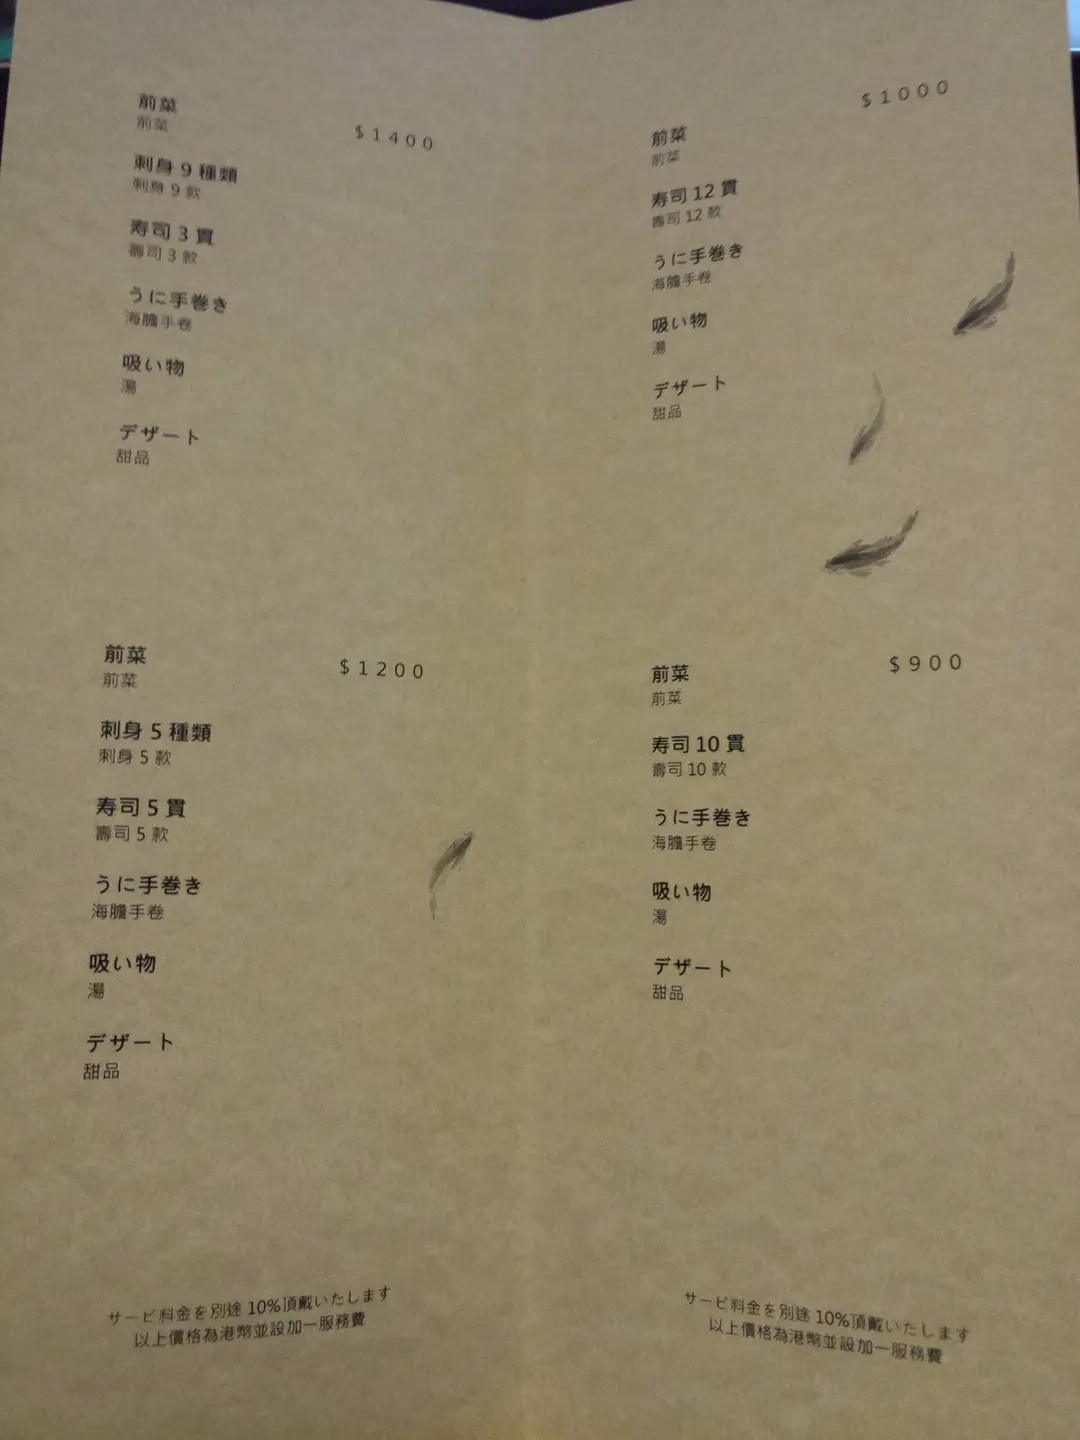 前菜
前菜
$1400
刺身 9 種類
刺身 9 款
寿司 3 貫
壽司 3 款
うに手巻き
海膽手卷
吸い物
湯
デザート
甜品
前菜
前菜
$1200
刺身 5 種類
刺身 5 款
寿司 5 貫
壽司 5 款
うに手巻き
海膽手卷
吸い物
湯
デザート
甜品
サービ料金を別途 10%頂戴いたします
以上價格為港幣並設加一服務費
$1000
前菜
前菜
寿司 12 貫
壽司 12 款
うに手巻き
海膽手卷
吸い物
湯
デザート
甜品
$900
前菜
前菜
寿司 10 貫
壽司 10 款
うに手巻き
海膽手卷
吸い物
湯
デザート
甜品
サービ料金を別途 10%頂戴いたします
以上價格為港幣並設加一服務費